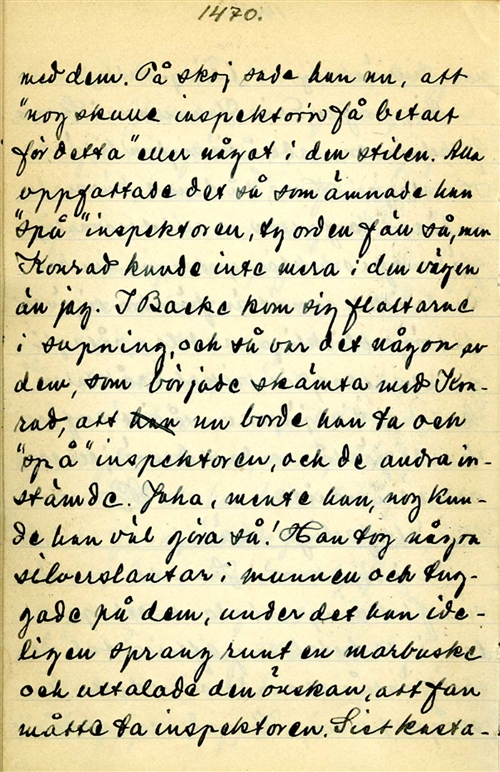 1470.
med dem. På skoj sade han nu, att
"nog skulle inspektorn få betalt
för detta" eller något i den stilen. Alla
uppfattade det så som ämnade han
"spå" inspektoren, ty orden föllo så, men
Konrad kunde inte mera i den vägen
än jag. I Backe kom sig flottarne
i supning, och så var det någon av
dem, som började skämta med Kon-
rad, att han nu borde han ta och
"spå" inspektoren, och de andra in-
stämde. Jaha, mente han, nog kun-
de han väl göra så! Han tog någon
silverslantar i munnen och tug-
gade på dem, under det han ide-
ligen sprang runt en marbuske
och uttalade den önskan, att fan
måtte ta inspektoren. Sist kasta-